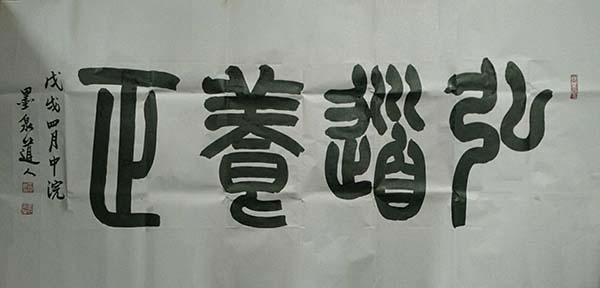 弘道養正
戊戌四月中浣
墨泉道人